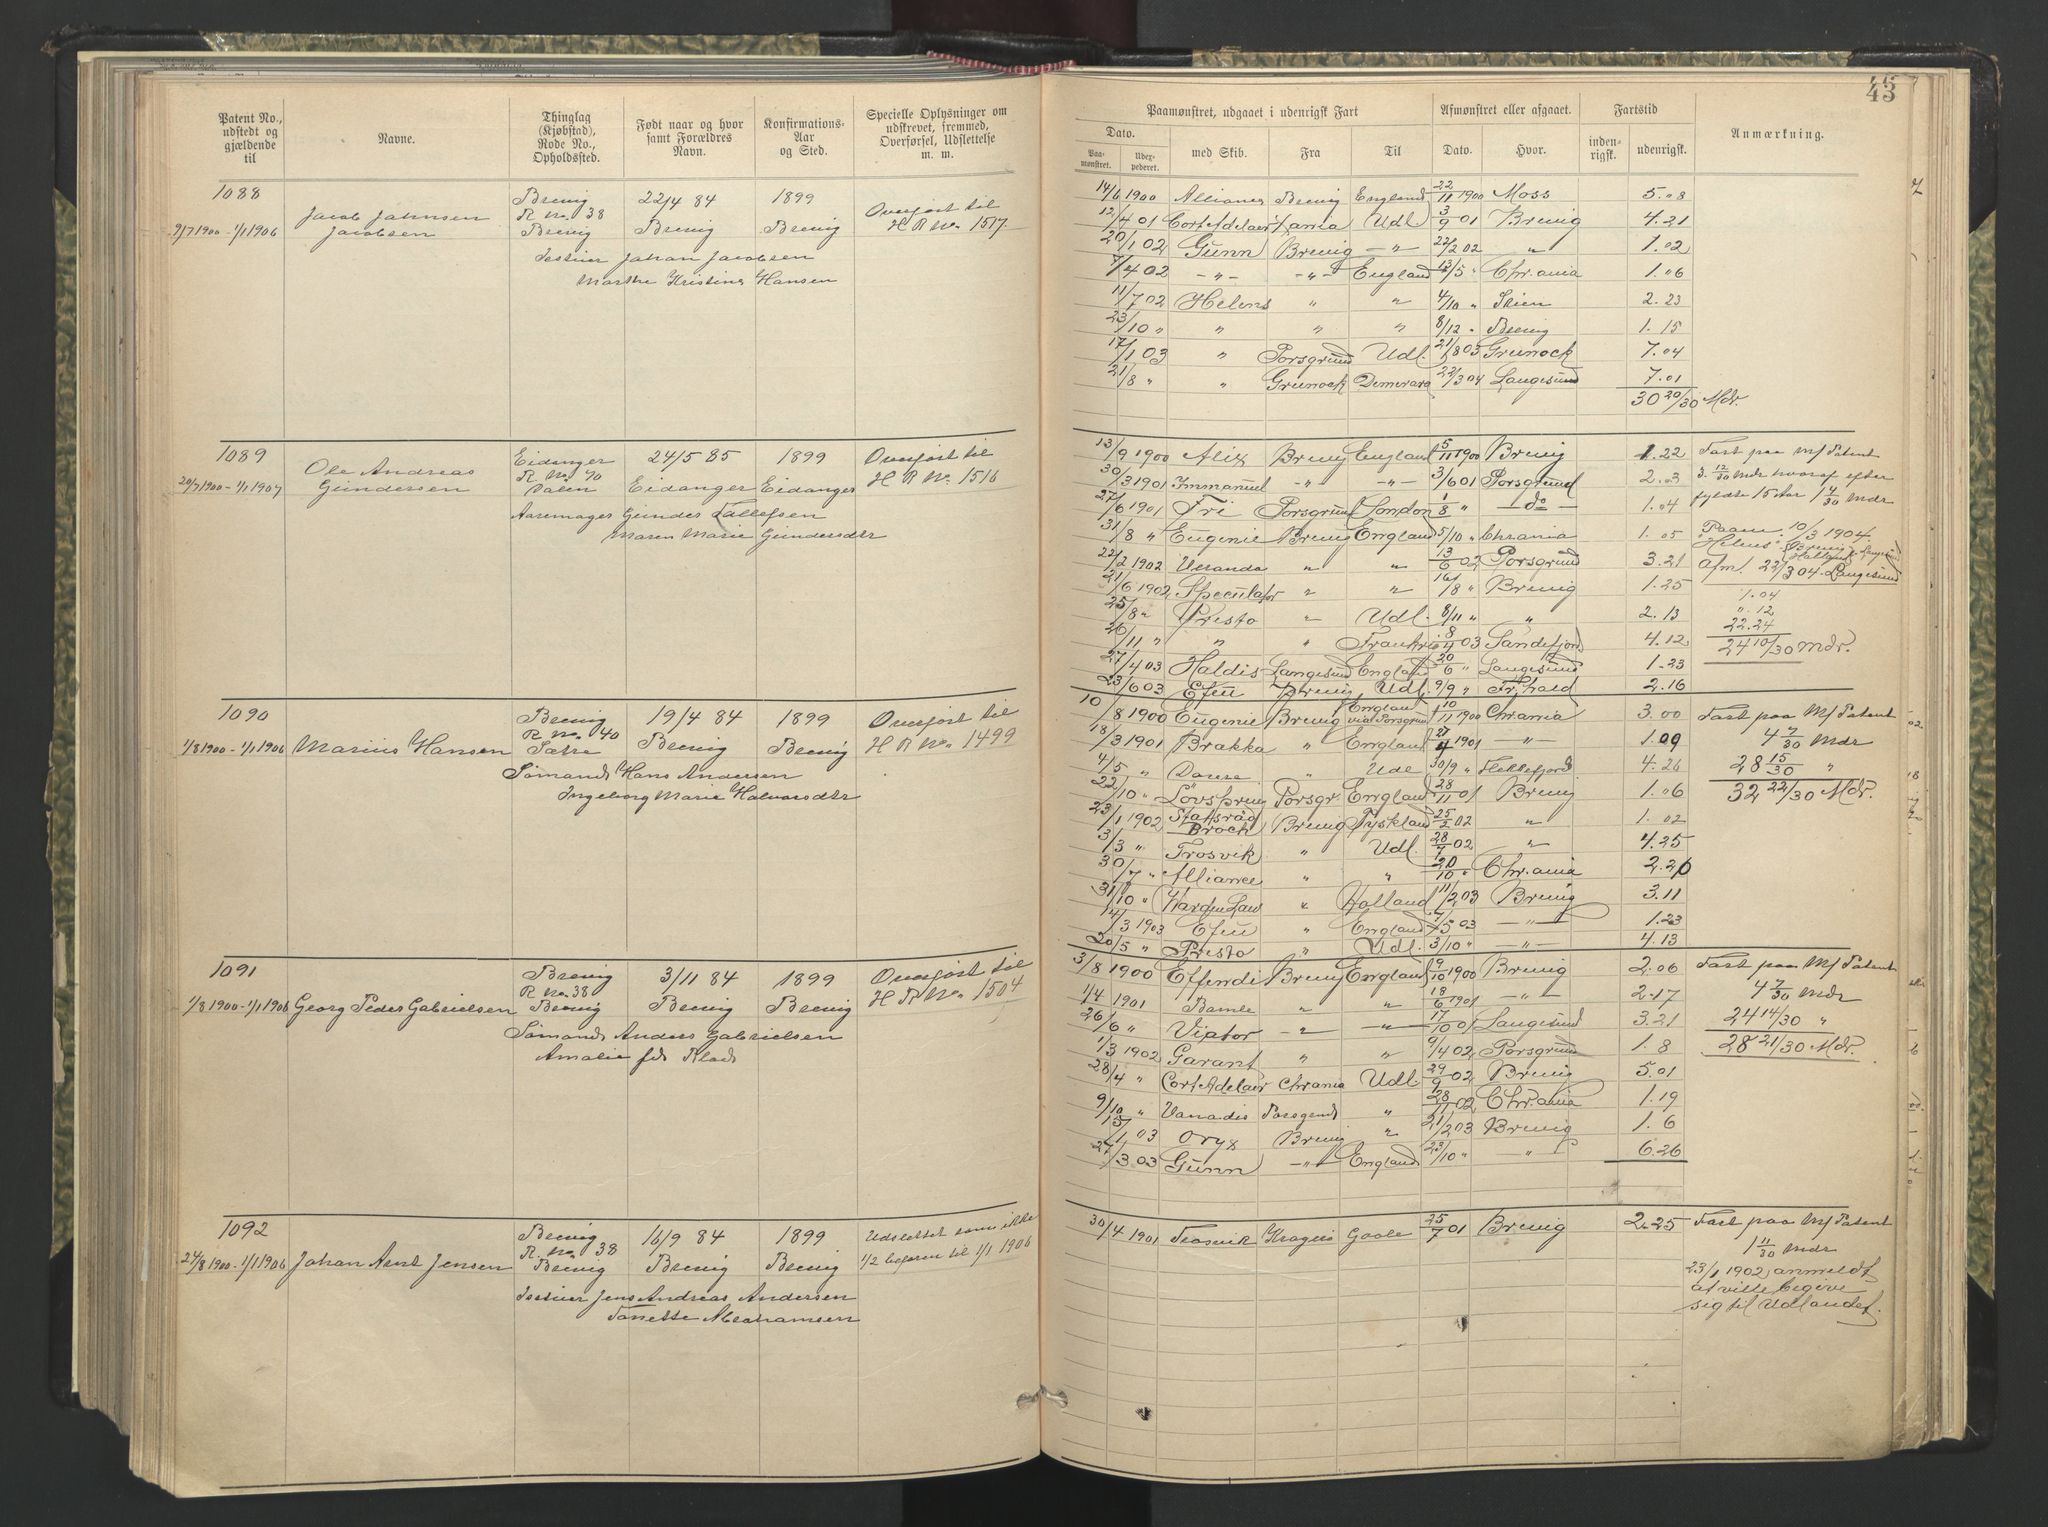 43
Patent No., udstedt og gjældende til
Navne.
Thinglag (Kjøbstad), Rode No., Opholdssted.
Født naar og hvor samt Forældres Navn.
Konfirmations-Aar og Sted.
Specielle Oplysninger om udskrevet, fremmed, Overførsel, Udslettelse m. m.
Paamønstret, udgaaet i udenrigsk Fart
Afmønstret eller afgaaet.
Fartstid
Anmærkning.
Dato.
Paa-mønstret.
Udex-pederet.
med Skib.
Fra
Til
Dato.
Hvor.
inden-rigsk.
udenrigsk.
1088
9/7 1900 - 1/1 1906
Jacob Johnsen
Jacobsen
Brevig
R No. 38
Brevig
22/4 84
Brevig
1899
Brevig
Overført til
H R No. 1517
Johan Jacobsen
Marthe Kristine Hansen
14/6 1900 Brevig England 22/11 1900 Moss 5.08
12/4 01 Cort Adelaer Xania Udl 3/9 01 Brevig 4.21
20/1 02 Gunn Brevig -"- 22/2 02 " 1.02
7/4 02 -"- -"- England 13/5 " Chr.ania 1.06
11/7 02 Helens " " 4/10 " Skien 2.23
23/10 " " " " 8/12 " Brevig 1.15
17/1 03 " Porsgrund Udl. 21/8 03 Grenock 7.04
21/8 " " Grenock Demerara 22/3 04 Langesund 7.01
30 20/30 Mdr.
1089
20/7 1900 - 1/1 1907
Ole Andreas
Gundersen
Eidanger
R No. 70
Dalen
24/5 85
Eidanger
1899
Eidanger
Overført til
H R No. 1516
Gunder Tallefsen
Maren Marie Gundersdtr
13/9 1900 Alix Brevig England 5/11 1900 Brevig 1.22 Fart paa M/ Patent
30/3 1901 Immanuel -"- -"- 3/6 01 Porsgrund 2.03 3 12/30 Mdr hvoraf efter
27/6 1901 Fri Porsgrund London 1/8 " -do- 1.04 fyldte 15 Aar 1 4/30 Mdr
31/8 " Eugenie Brevig England 5/10 " Chrania 1.05 Paam. 10/3 1904
22/2 1902 Veranda " " 13/6 02 Porsgrund 3.21 Afm. 22/3 04 Langesund
21/6 1902 Speculator " " 16/8 " Brevig 1.25 1.04
25/8 " Presto " Udl. 8/11 " " 2.13 0.12
26/11 " " " 8/4 03 Sandefjord 4.12 22.24
24 10/30 Mdr.
27/4 03 Haldis Langesund England 20/6 " Langesund 1.23
23/6 03 Efeu Brevig Udl. 9/9 " Fr.hald 2.16
1090
1/8 1900 - 1/1 1906
Marius Hansen
Brevig
R No. 40
Sætre
19/4 84
Brevig
1899
Brevig
Overført til
H R No. 1499
Sømand Hans Andersen
Ingeborg Marie Halvorsdtr
10/8 1900 Eugenie Brevig England via Porsgrund 10/11 1900 Chrania 3.00 Fart paa M/ Patent
18/3 1901 Brakka " England 27/4 1901 -"- 1.09 4 7/30 Mdr
4/5 " " Udl 30/9 " Flekkefjord 4.26 28 15/30 "
22/10 " Løvspring Porsgr. England 28/11 01 Brevig 1.06 32 22/30 Mdr.
23/1 1902 Statsråd Broch Brevig Tyskland 25/2 02 " 1.02
3/3 " Trosvik " Udl. 28/7 02 " 4.25
30/7 " Alliance " " 20/10 " Chr.ania 2.20
31/10 " Warden Law " Holland 11/2 03 Brevig 3.11
14/3 1903 Efeu " England 7/5 03 -"- 1.23
20/5 " Presto " Udl. 3/10 " -"- 4.13
1091
1/8 1900 - 1/1 1906
Georg Peder Gabrielsen
Brevig
R No. 38
Brevig
3/11 84
Brevig
1899
Brevig
Overført til
H R No. 1504
Sømand Anders Gabrielsen
Amalie fdt
3/8 1900 Effendi Brevig England 9/10 1900 Brevig 2.06 Fart paa M/ Patent
1/4 1901 Bamle " " 18/6 1901 -"- 2.17 4 7/30 Mdr
26/6 " Viator -"- -"- 17/10 01 Langesund 3.21 24 14/30 "
1/3 1902 Garant " " 9/4 02 Porsgrund 1.8 28 21/30 Mdr.
28/4 " Cort Adelaer Chrania Udl 29/9 02 Brevig 5.01
9/10 " Vanadis Porsgrund " 28/11 02 Chr.ania 1.19
15/1 03 Oryx Brevig " 21/2 03 Brevig 1.6
27/3 03 Gunn -"- England 23/10 " -"- 6.26
1092
24/8 1900 - 1/1 1906
Johan Arnt Jensen
Brevig
R. No. 38
Brevig
16/9 84
Brevig
1899
Brevig
Udslettet som ikke
1/2 befaren til 1/1 1906
Jens Andreas Andersen
Tonette Abrahamsen
30/4 1901 Trosvik Kragerø Goole 25/7 01 Brevig 2.25 Fart paa M/ Patent
1 11/30 Mdr
23/1 1902 anmeldt
at ville begive
sig til Udlandet.